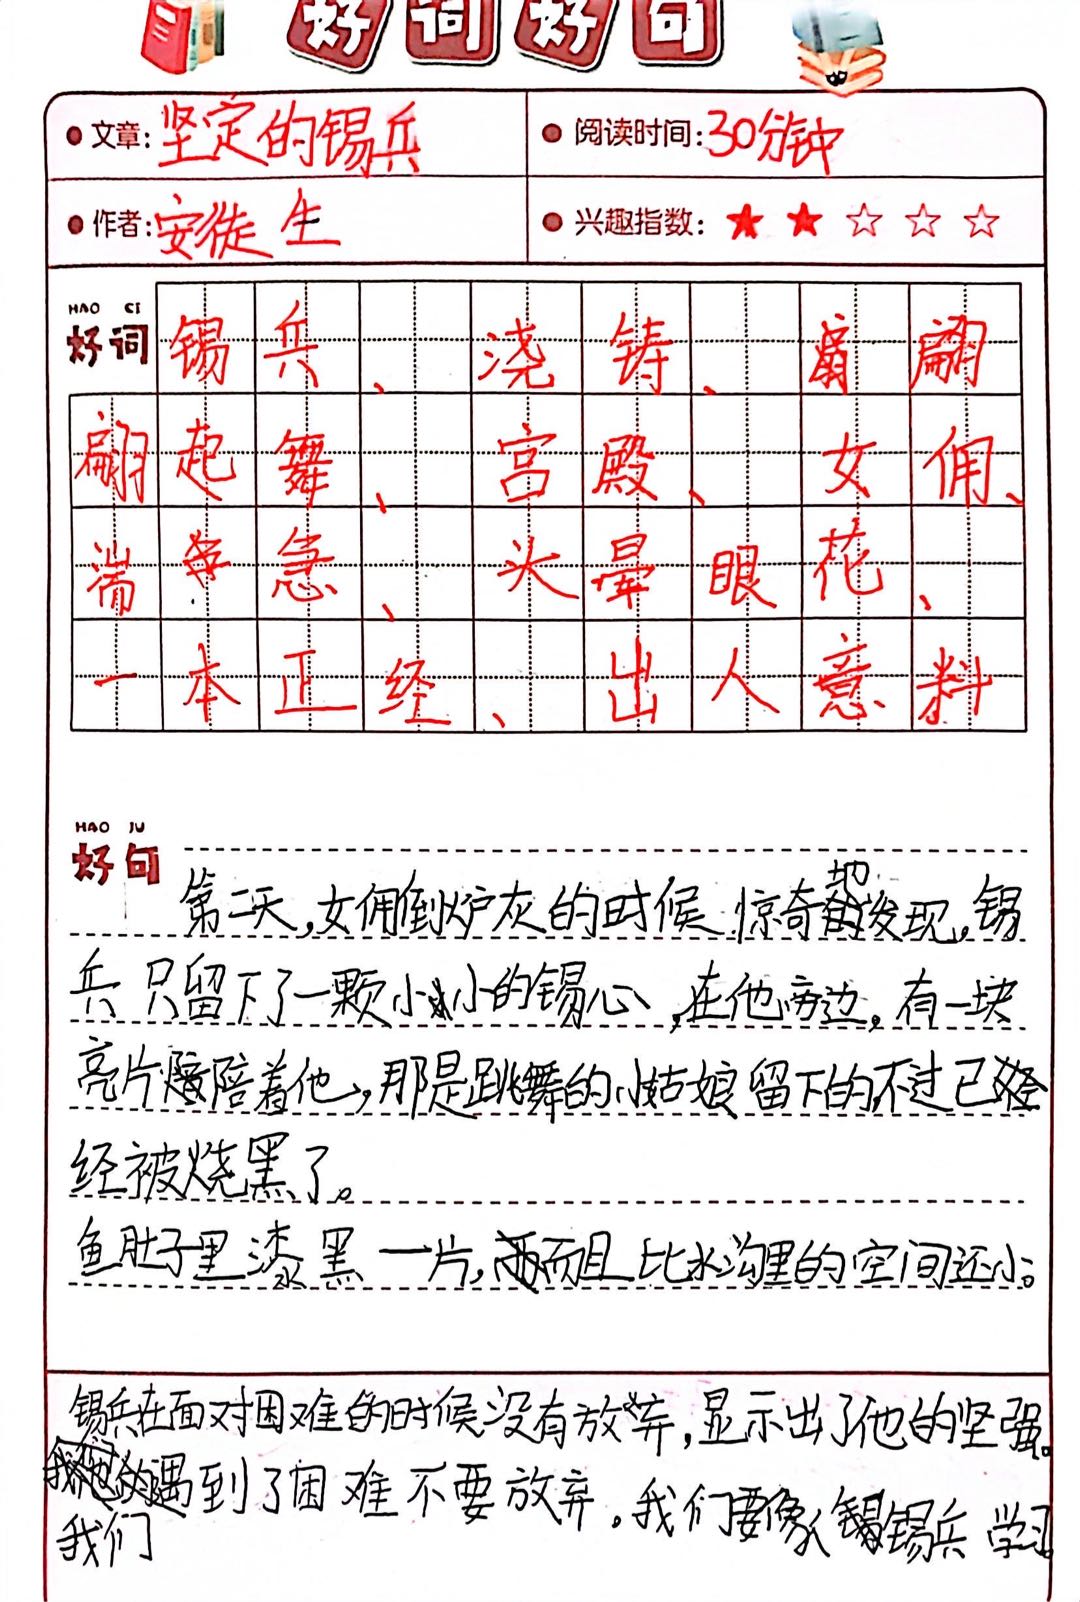 好词好句
文章:坚定的锡兵
阅读时间:30分钟
作者:安徒生
兴趣指数:★★☆☆☆
HAO CI
好词
锡兵、浇铸、扇翩
翩起舞、宫殿、女佣、
湍急、头晕眼花、
一本正经、出人意料
HAO JU
好句
第二天,女佣倒炉灰的时候惊奇地发现,锡
兵只留下了一颗小小的锡心,在他旁边,有一块
亮片陪着他,那是跳舞的小姑娘留下的,不过已
经被烧黑了。
鱼肚子里漆黑一片,而且比水沟里的空间还小。
锡兵在面对困难的时候没有放弃,显示出了他的坚强。
我们
遇到了困难不要放弃。我们要像锡兵学习。